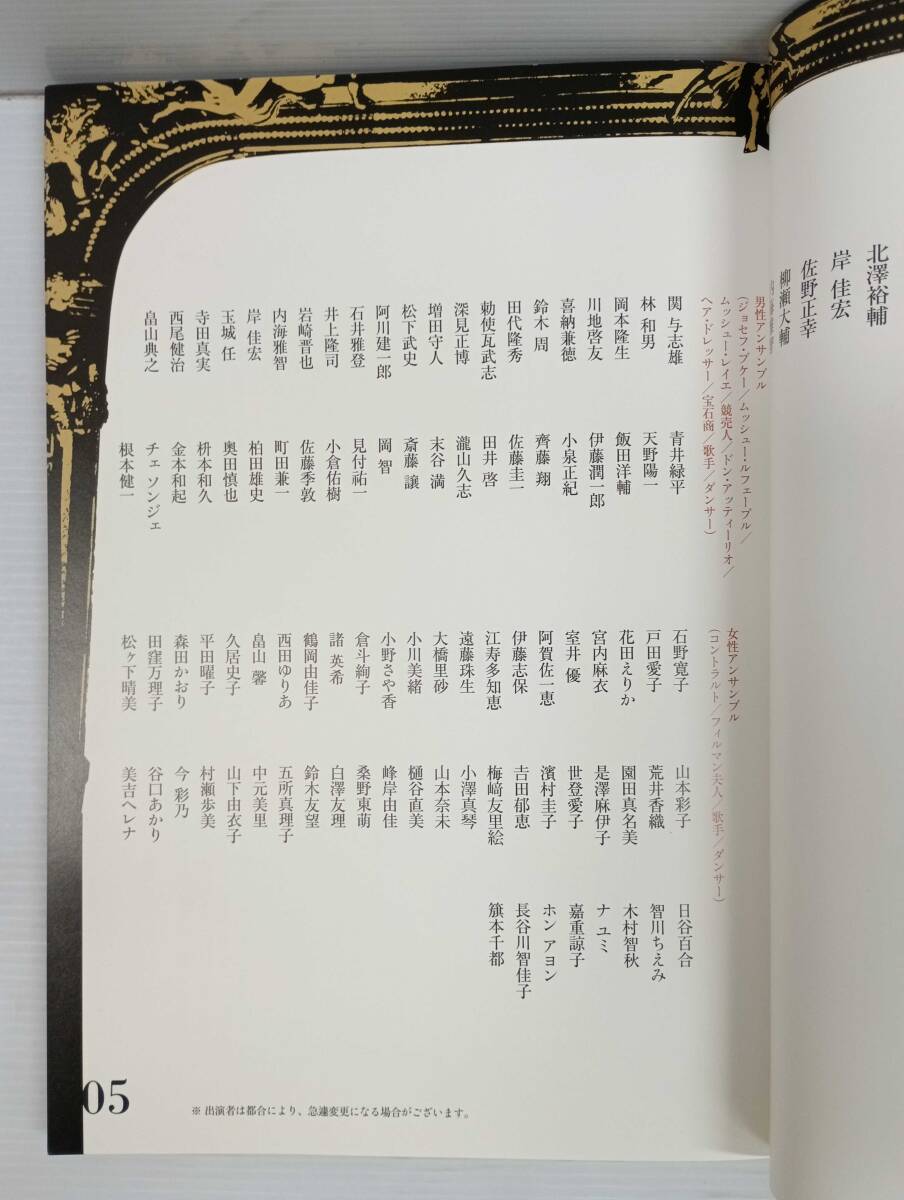 北澤裕輔
岸 佳宏
佐野正幸
柳瀬大輔
男性アンサンブル
(ジョセフ・ブケー/ムッシュー・ルフェーブル/
ムッシュー・レイエ/競売人/ドン・アッティーリオ/
ヘア・ドレッサー/宝石商/歌手/ダンサー)
関 与志雄
林 和男
岡本隆生
川地啓友
喜納兼徳
鈴木 周
田代隆秀
勅使瓦武志
深見正博
増田守人
松下武史
阿川建一郎
石井雅登
井上隆司
岩崎晋也
内海雅智
岸 佳宏
玉城 任
寺田真実
西尾健治
畠山典之
青井緑平
天野陽一
飯田洋輔
伊藤潤一郎
小泉正紀
齊藤 翔
佐藤圭一
田井 啓
瀧山久志
末谷 満
斎藤 譲
岡 智
見付祐一
小倉佑樹
佐藤季敦
町田兼一
柏田雄史
奥田慎也
枡本和久
金本和起
チェ ソンジェ
根本健一
女性アンサンブル
(コントラルト/フィルマン夫人/歌手/ダンサー)
石野寛子
戸田愛子
花田えりか
宮内麻衣
室井 優
阿賀佐一恵
伊藤志保
江寿多知恵
遠藤珠生
大橋里砂
小川美緒
小野さや香
倉斗絢子
諸 英希
鶴岡由佳子
西田ゆりあ
畠山 馨
久居史子
平田曜子
森田かおり
田窪万理子
松ヶ下晴美
山本彩子
荒井香織
園田真名美
是澤麻伊子
世登愛子
濱村圭子
吉田郁恵
梅﨑友里絵
小澤真琴
山本奈未
樋谷直美
峰岸由佳
桑野東萌
白澤友理
鈴木友望
五所真理子
中元美里
山下由衣子
村瀬歩美
今 彩乃
谷口あかり
美吉ヘレナ
日谷百合
智川ちえみ
木村智秋
ナ ユミ
嘉重諒子
ホン アヨン
長谷川智佳子
籏本千都
05
※ 出演者は都合により、急遽変更になる場合がございます。